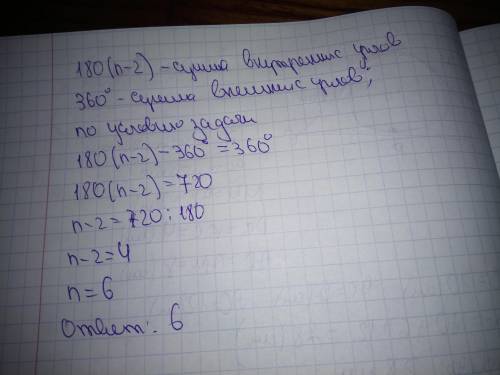 180(n-2) - сумма внутренних углов
360° - сумма внешних углов;
по условию задачи
180(n-2)-360°=360°
180(n-2)=720
n-2=720:180
n-2=4
n=6
Ответ: 6